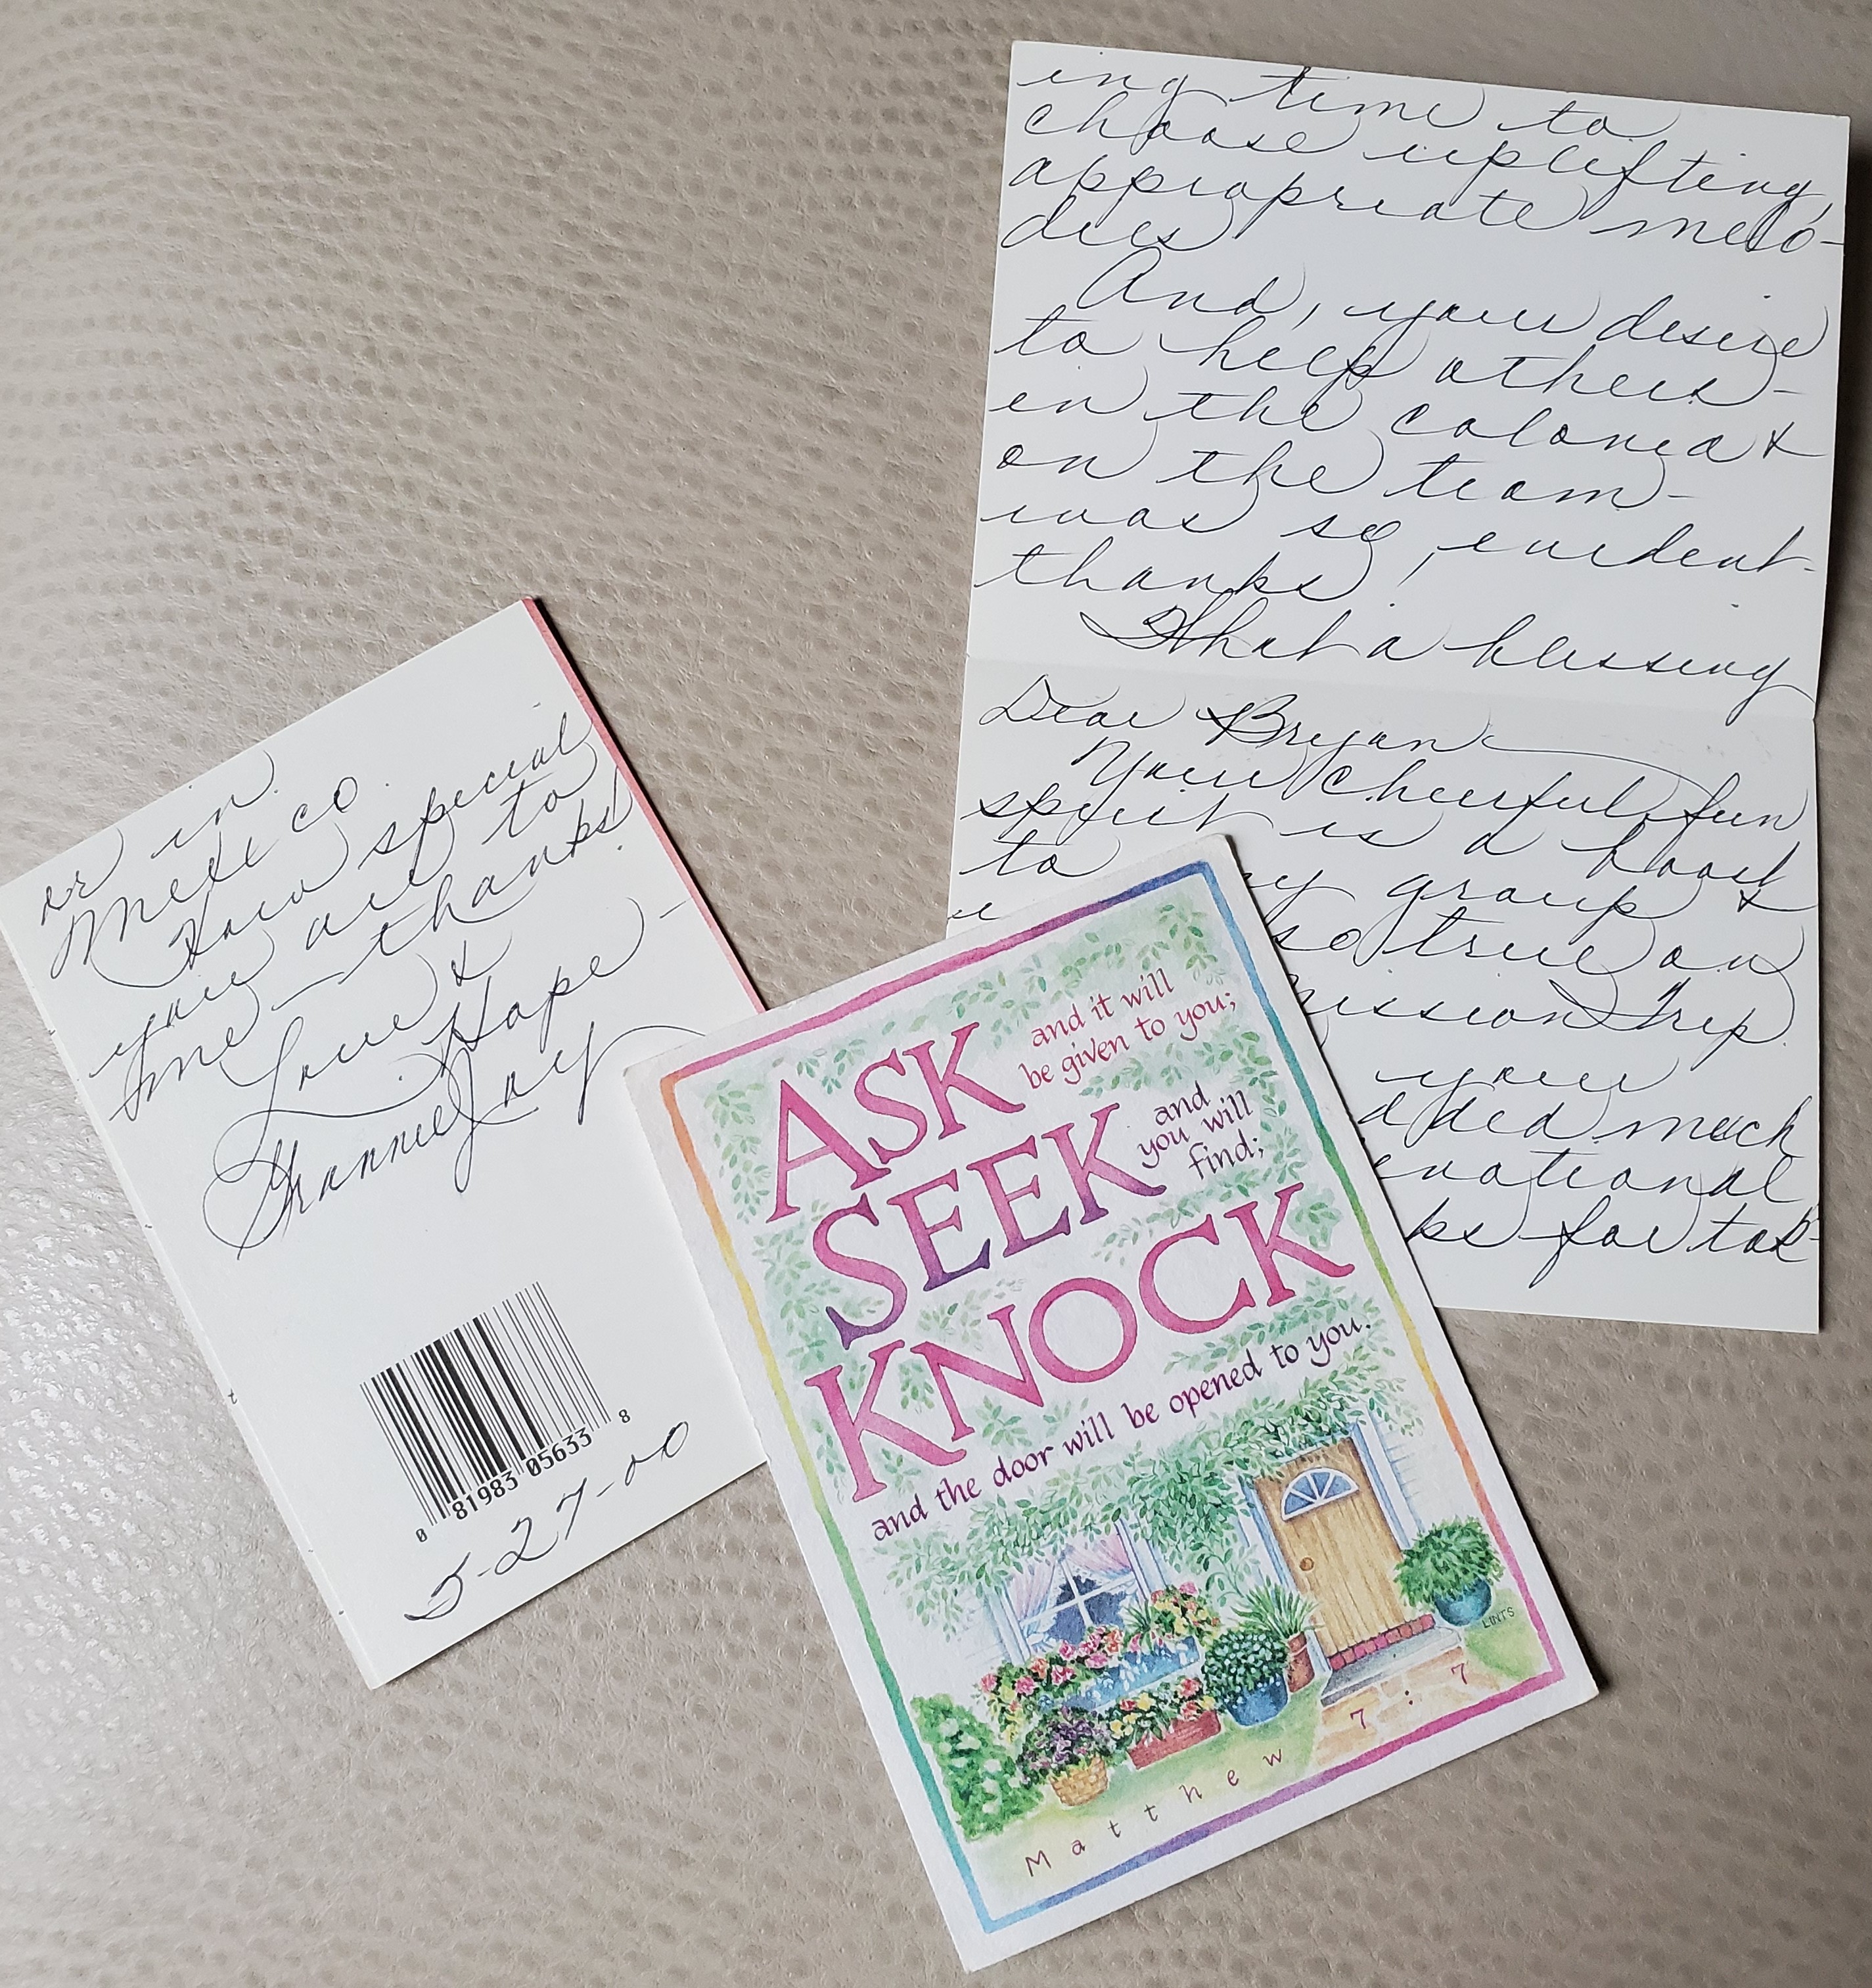 ing time to
choose uplifting,
appropriate melo-
dies
And, your desire
to help others-
in the colonia &
on the team-
was so evident-
thanks!
What a blessing
Dear Bryan
Your cheerful, fun
spirit is a boost
to group &
so true on
mission trip.
your
added much
ks for tak-
or in
Mexico.
Know special
you are to
me - thanks!
Love &
Hope -
Grannie Joy
0 81983 05633 8
5-27-00
ASK and it will
be given to you;
SEEK and
you will
find;
KNOCK
and the door will be opened to you.
LINTS
Matthew 7:7